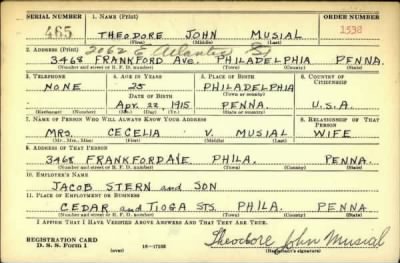 SERIAL NUMBER 1. NAME (Print) ORDER NUMBER
465 THEODORE JOHN MUSIAL 1538
(First) (Middle) (Last)
2062 E Atlantic St
2. ADDRESS (Print)
3468 FRANKFORD AVE. PHILADELPHIA PENNA.
(Number and street or R. F. D. number) (Town) (County) (State)
3. TELEPHONE 4. AGE IN YEARS 5. PLACE OF BIRTH 6. COUNTRY OF CITIZENSHIP
NONE 25 PHILADELPHIA
DATE OF BIRTH (Town or county)
APR. 22 1915 PENNA. U.S.A.
(Exchange) (Number) (Mo.) (Day) (Yr.) (State or country)
7. NAME OF PERSON WHO WILL ALWAYS KNOW YOUR ADDRESS 8. RELATIONSHIP OF THAT PERSON
MRS. CECELIA V. MUSIAL WIFE
(Mr., Mrs., Miss) (First) (Middle) (Last)
9. ADDRESS OF THAT PERSON
3468 FRANKFORD AVE PHILA. PENNA.
(Number and street or R. F. D. number) (Town) (County) (State)
10. EMPLOYER'S NAME
JACOB STERN and SON
11. PLACE OF EMPLOYMENT OR BUSINESS
CEDAR and TIOGA STS. PHILA. PENNA
(Number and street or R. F. D. number) (Town) (County) (State)
I AFFIRM THAT I HAVE VERIFIED ABOVE ANSWERS AND THAT THEY ARE TRUE.
REGISTRATION CARD
D. S. S. Form 1 (over) 16—17105 Theodore John Musial
(Registrant's signature)